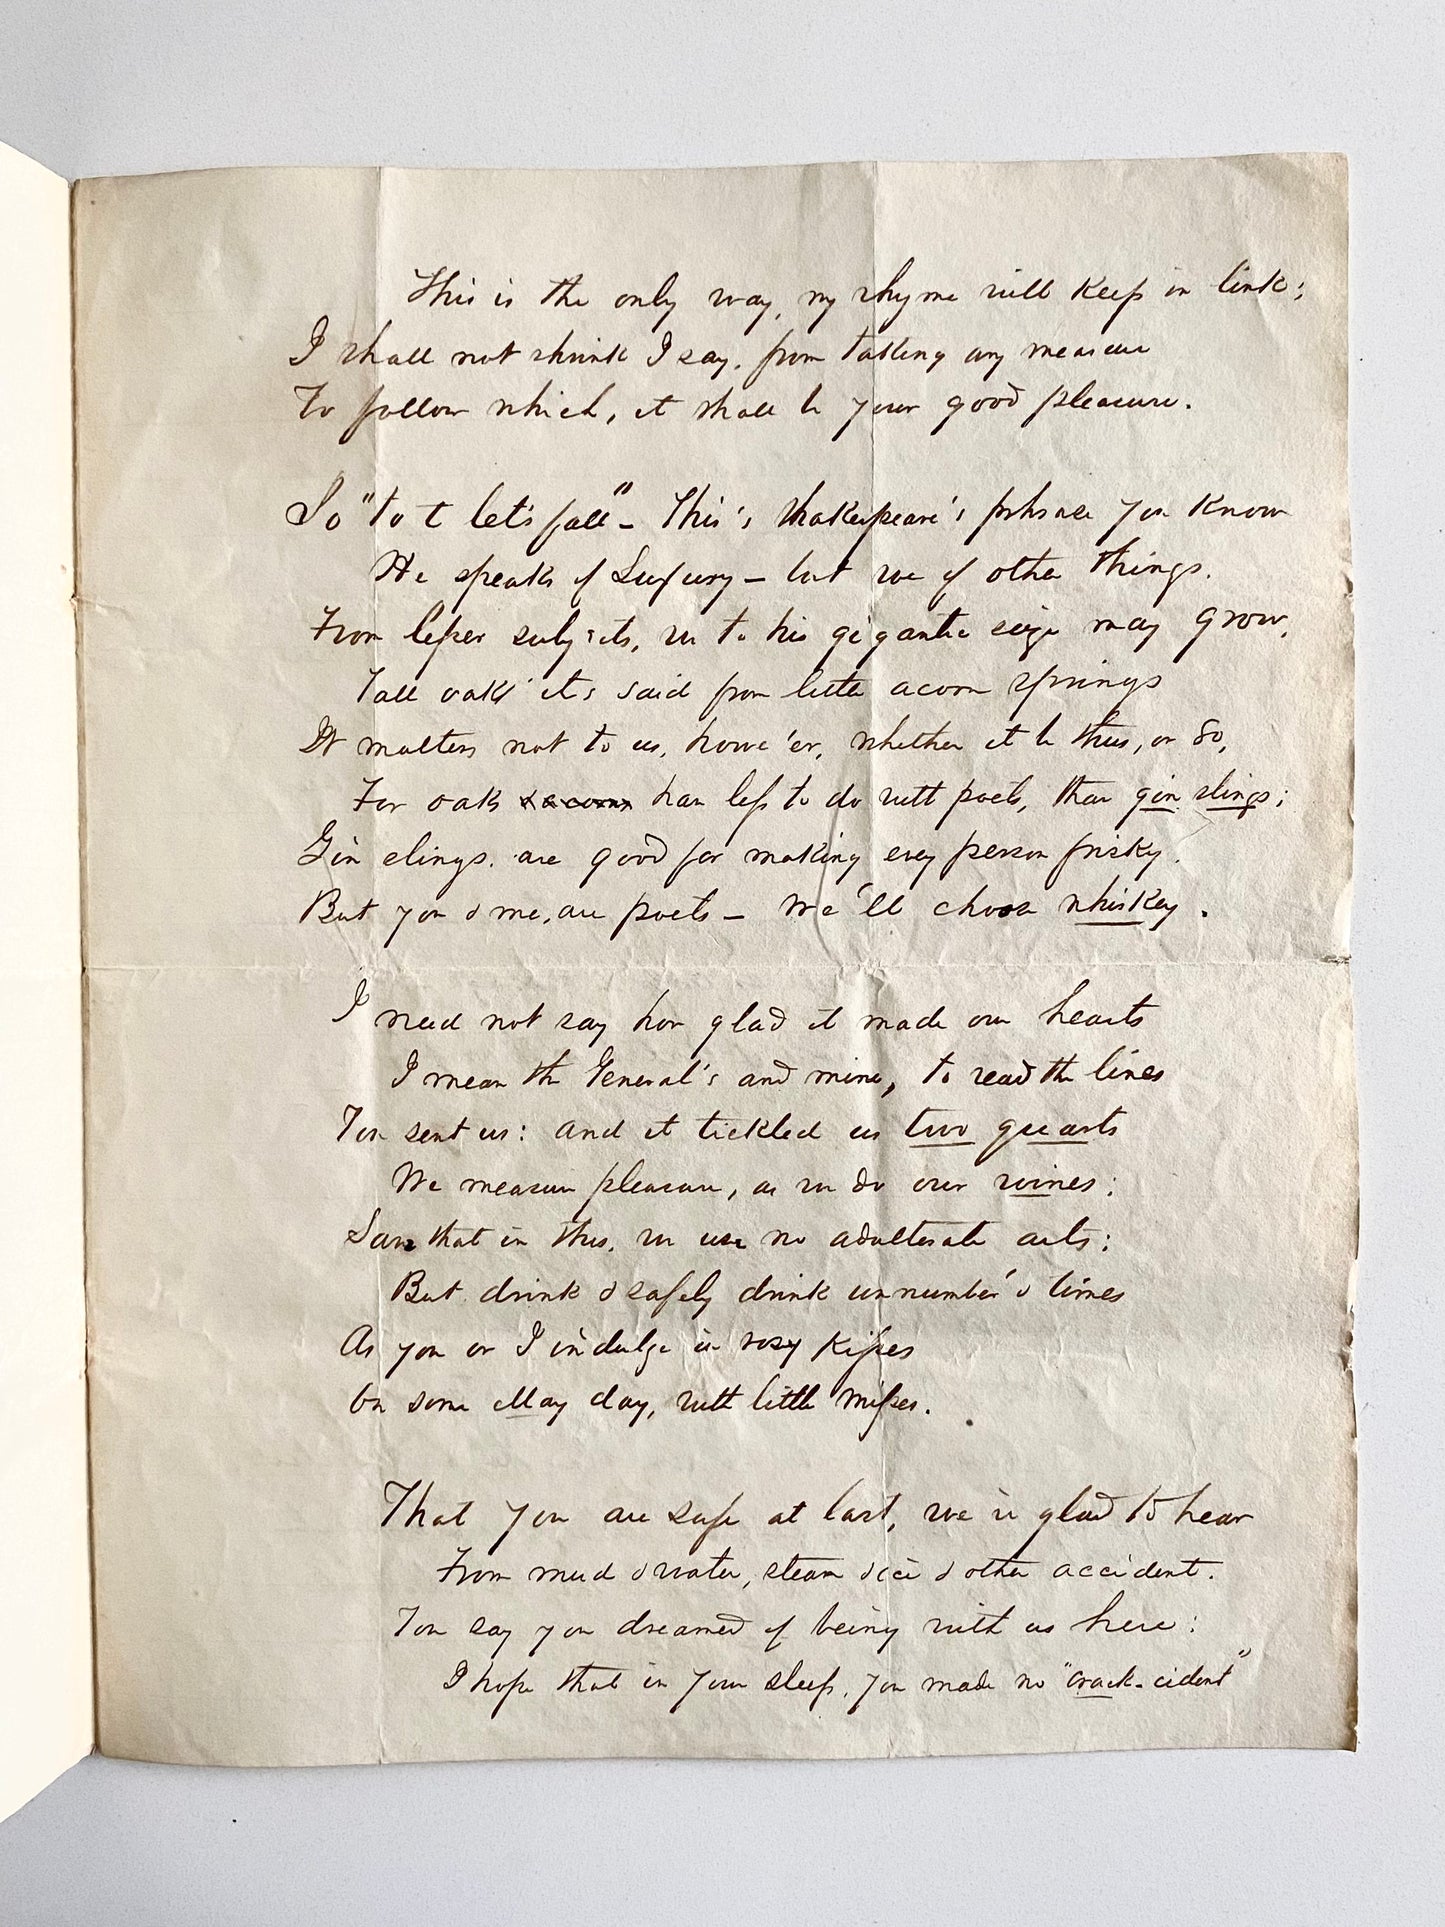 This is the only way, my rhyme will keep in link;
I shall not shrink I say, from taking any measure
To follow which, it shall be your good pleasure.
So "to t let's fall" – This's Shakespeare's phrase you know
He speaks of Luxury – but we of other things.
From lesser subjects, we to his gigantic size may grow,
Tall oaks it's said from little acorn springs
It matters not to us, howe'er, whether it be thus, or so,
For oak & acorns has less to do with poets, than gin slings;
Gin slings. are good for making every person frisky.
But you & me, are poets – We'll choose whiskey.
I need not say how glad it made our hearts
I mean the General's and mine, to read the lines
You sent us: and it tickled us two quarts
We measure pleasure, as we do our wines;
Save that in this, we use no adulterate arts;
But drink & safely drink unnumber'd times
As you or I indulge in rosy kisses
On some May day, with little misses.
That you are safe at last, we're glad to hear
From mud & water, steam & ice & other accident.
You say you dreamed of being with us here:
I hope that in your sleep, you made no "crack-cident"